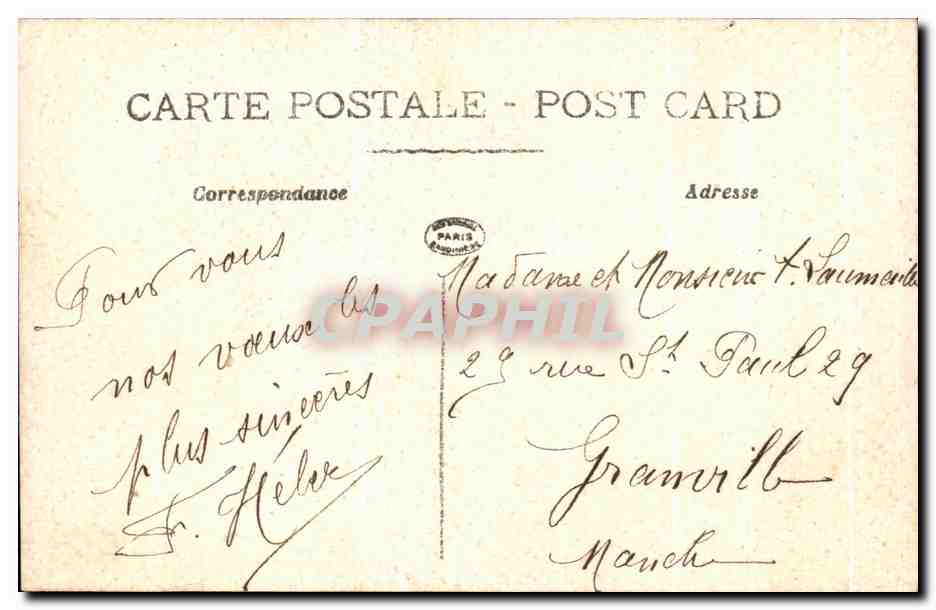 CARTE POSTALE - POST CARD
Correspondance
Adresse
PARIS
CPAPHIL
Pour vous
nos vœux les
plus sincères
Madame et Monsieur
29 rue St Paul 29
Granville
Manche